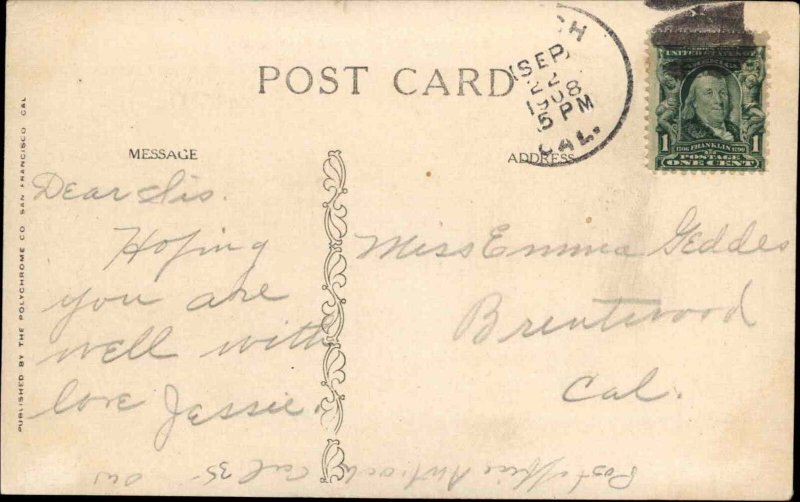 POST CARD
MESSAGE
ADDRESS
CH
SEP
22
1908
5 PM
CAL.
UNITED STATES
1 1706 FRANKLIN 1790 1
POSTAGE
ONE CENT
Dear Sis.
Hoping
you are
well with
love Jessie.
Miss Emma Geddes
Brentwood
Cal.
Post office Antioch Cal 35
PUBLISHED BY THE POLYCHROME CO. SAN FRANCISCO CAL